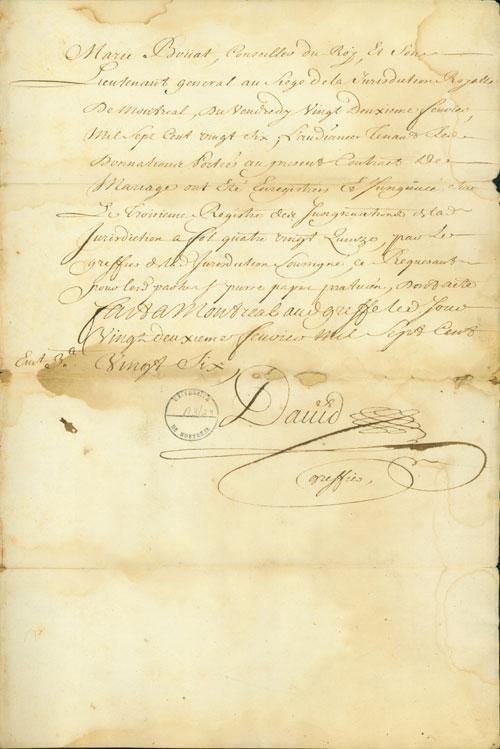 Marie Boüat, Conseiller du Roy, Et Son
Lieutenant general au Siege de la Jurisdiction Royalle
De Montreal, Du Vendredy Vingt Deuxieme feuvrier
Mil Sept Cent vingt Six, L'audiance Tenant Les
Donnations Portées au present Contract De
Mariage ont Eté Enregistrées & Jnsinuées
Le Troisieme Registre des Jnsinuations de lad
Jurisdiction a fol quatre vingt Quinze par Le
greffier de lad Jurisdiction Soussigné Ce Requerant
pour les parties
fait a Montreal aud greffe led Jour
Vingt deuxieme feuvrier Mil Sept Cent
Vingt Six
David
greffier